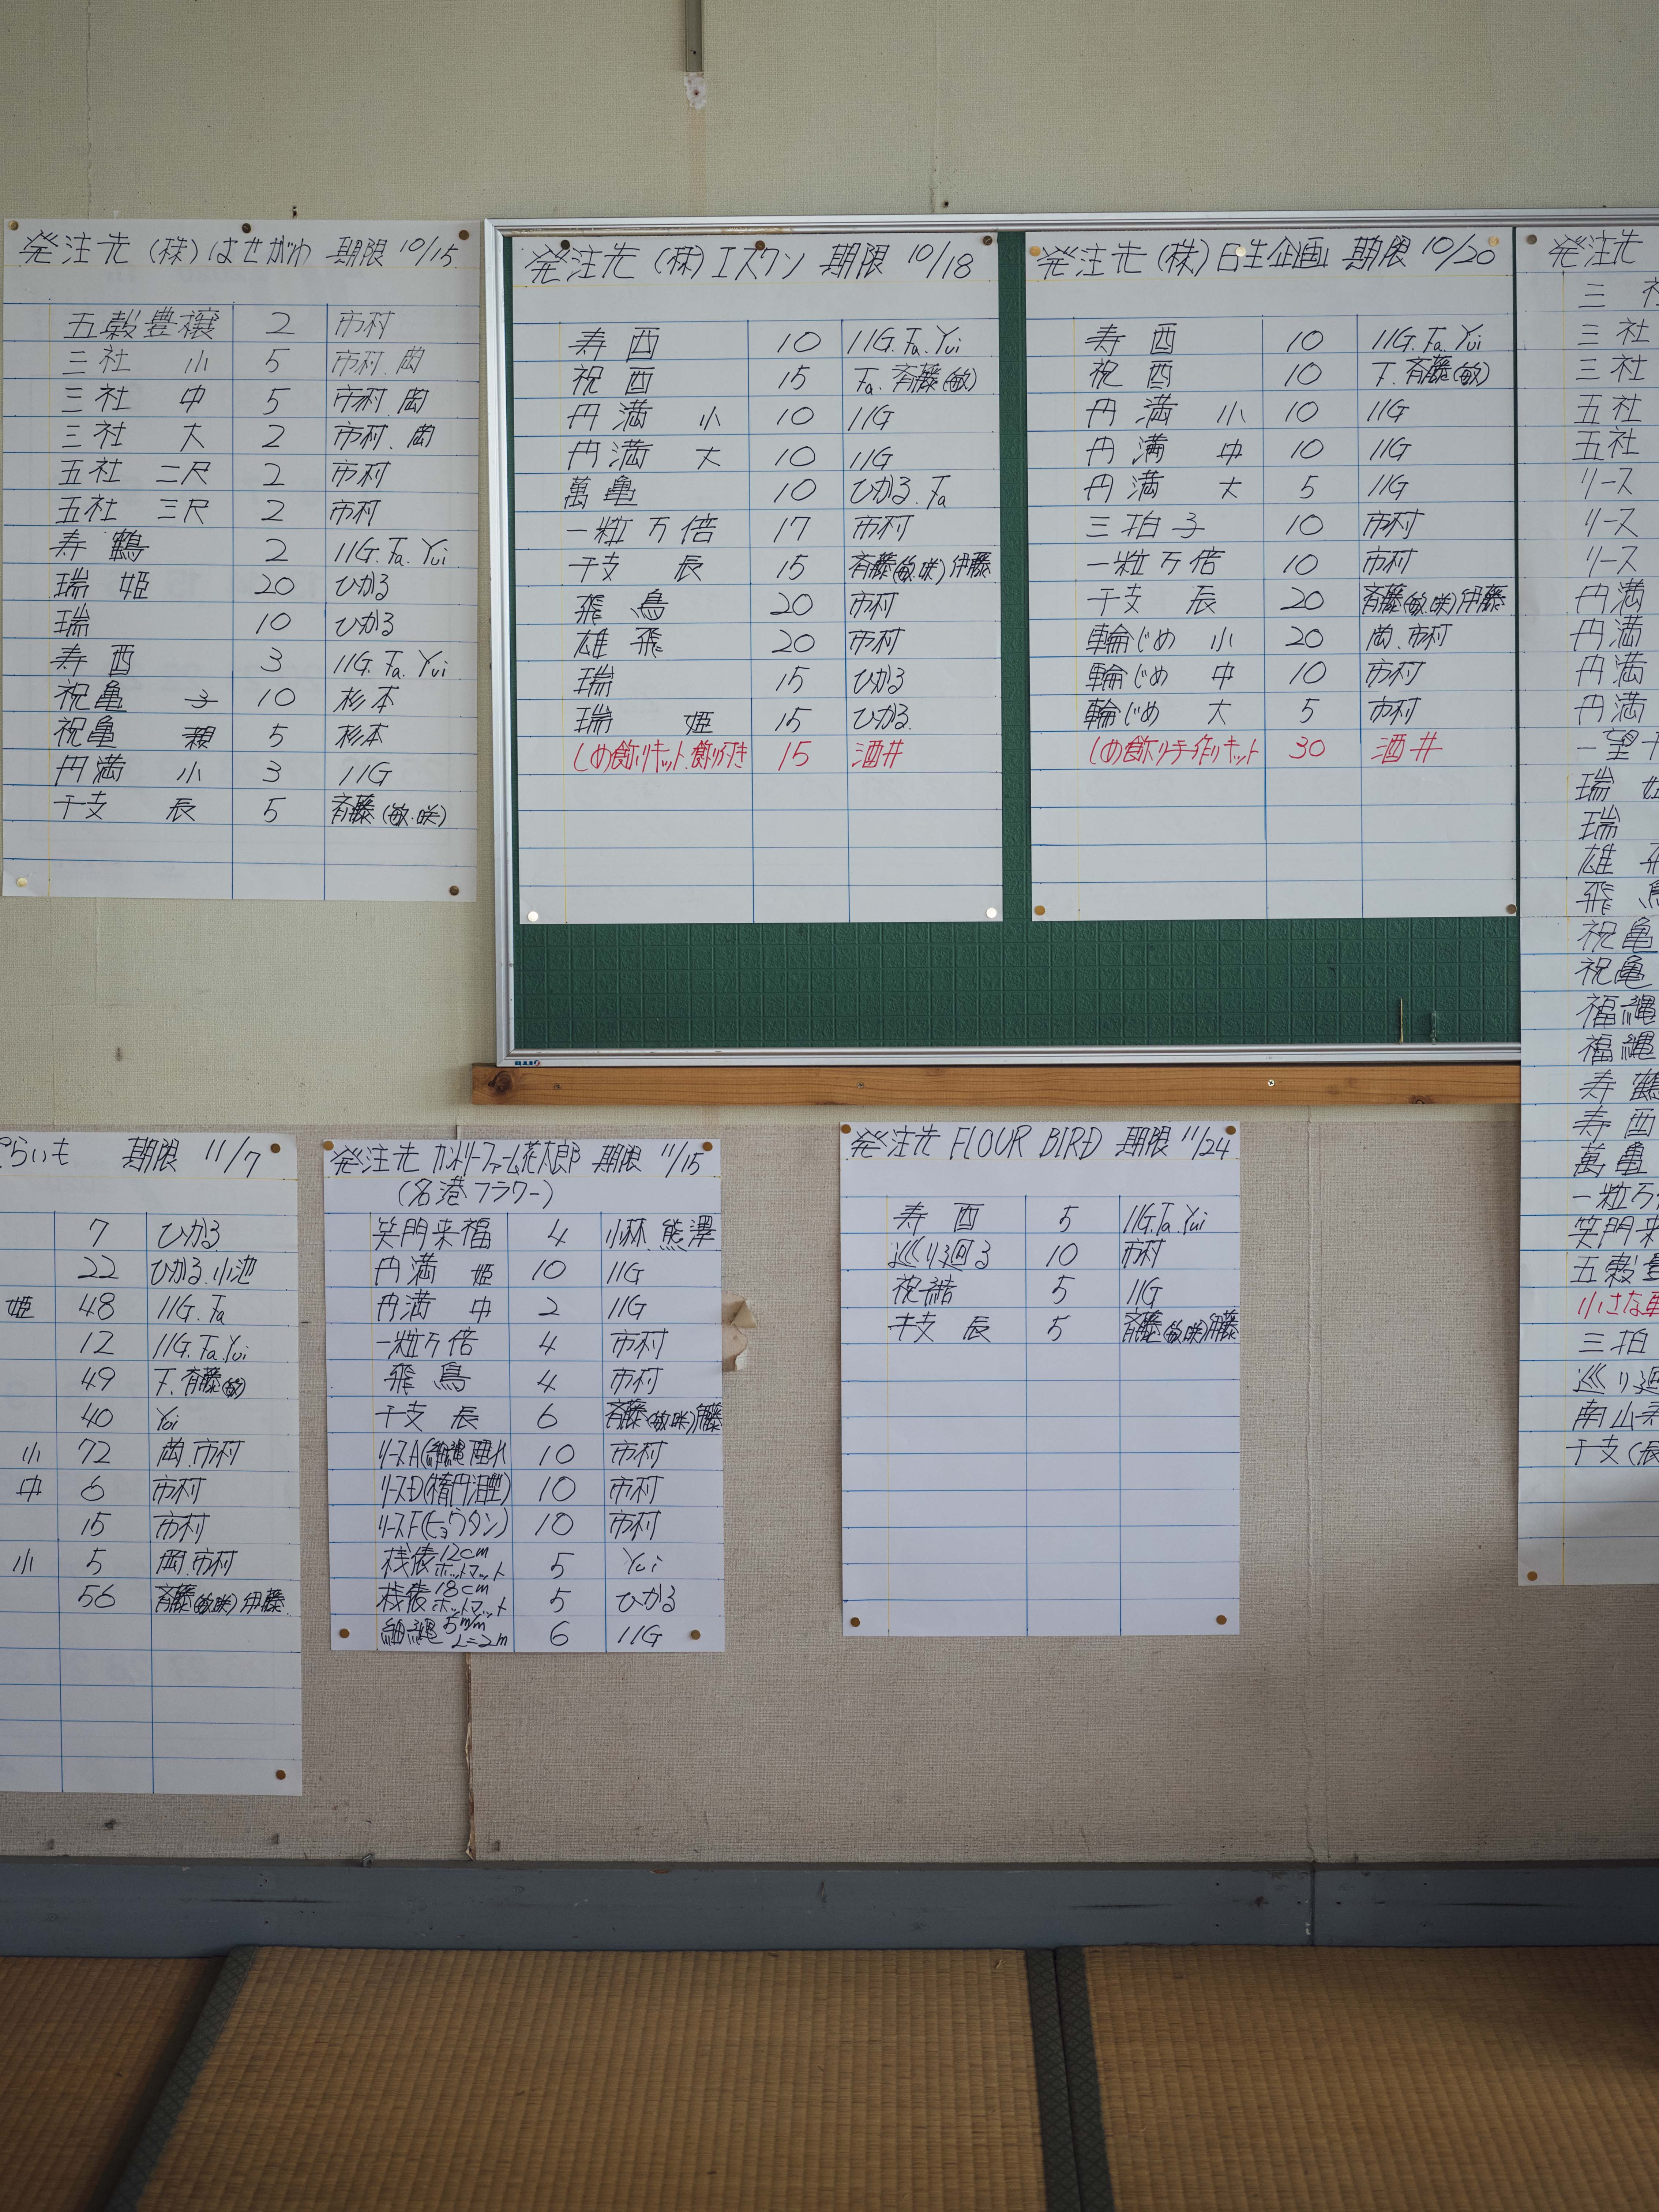 発注先 (株)はせがわ 期限 10/15
五穀豊穣 2 市村
三社 小 5 市村.岡
三社 中 5 市村.岡
三社 大 2 市村.岡
五社 二尺 2 市村
五社 三尺 2 市村
寿鶴 2 11G.Fa.Yui
瑞姫 20 ひかる
瑞 10 ひかる
寿酉 3 11G.Fa.Yui
祝亀 子 10 杉本
祝亀 親 5 杉本
円満 小 3 11G
干支 辰 5 斉藤(敏.咲)
発注先 (株)エスワン 期限 10/18
寿酉 10 11G.Fa.Yui
祝酉 15 Fa.斉藤(敏)
円満 小 10 11G
円満 大 10 11G
萬亀 10 ひかる.Fa
一粒万倍 17 市村
干支 辰 15 斉藤(敏.咲)伊藤
飛鳥 20 市村
雄飛 20 市村
瑞 15 ひかる
瑞 姫 15 ひかる.
しめ飾りキット.飾り付き 15 酒井
発注先 (株)日生企画 期限 10/20
寿酉 10 11G.Fa.Yui
祝酉 10 下.斉藤(敏)
円満 小 10 11G
円満 中 10 11G
円満 大 5 11G
三拍子 10 市村
一粒万倍 10 市村
干支 辰 20 斉藤(敏.咲)伊藤
輪じめ 小 20 岡.市村
輪じめ 中 10 市村
輪じめ 大 5 市村
しめ飾り手作りキット 30 酒井
発注先
三
三社
三社
五社
五社
リース
リース
リース
円満
円満
円満
円満
一望
瑞
瑞
雄
飛
祝亀
祝亀
福縄
福縄
寿鶴
寿酉
萬亀
一粒万
笑門来
五穀
小さな
三拍
巡り廻
南山
干支(辰
らいも 期限 11/7
7 ひかる
22 ひかる.小池
姫 48 11G.Fa
12 11G.Fa.Yui
49 下.斉藤(敏)
40 Yui
小 72 岡.市村
中 6 市村
15 市村
小 5 岡.市村
56 斉藤(敏.咲)伊藤
発注先 カントリーファーム花太郎 期限 11/15
(名港フラワー)
笑門来福 4 小林.熊澤
円満 姫 10 11G
円満 中 2 11G
一粒万倍 4 市村
飛鳥 4 市村
干支 辰 6 斉藤(敏.咲)伊藤
リースA(細縄垂れ 10 市村
リースD(楕円沼型) 10 市村
リースF(ヒョウタン) 10 市村
桟俵12cm ポットマット 5 Yui
桟俵18cm ポットマット 5 ひかる
細縄 5m/m L=2m 6 11G
発注先 FLOUR BIRD 期限 11/24
寿酉 5 11G.Fa.Yui
巡り廻る 10 市村
祝結 5 11G
干支 辰 5 斉藤(敏.咲)伊藤